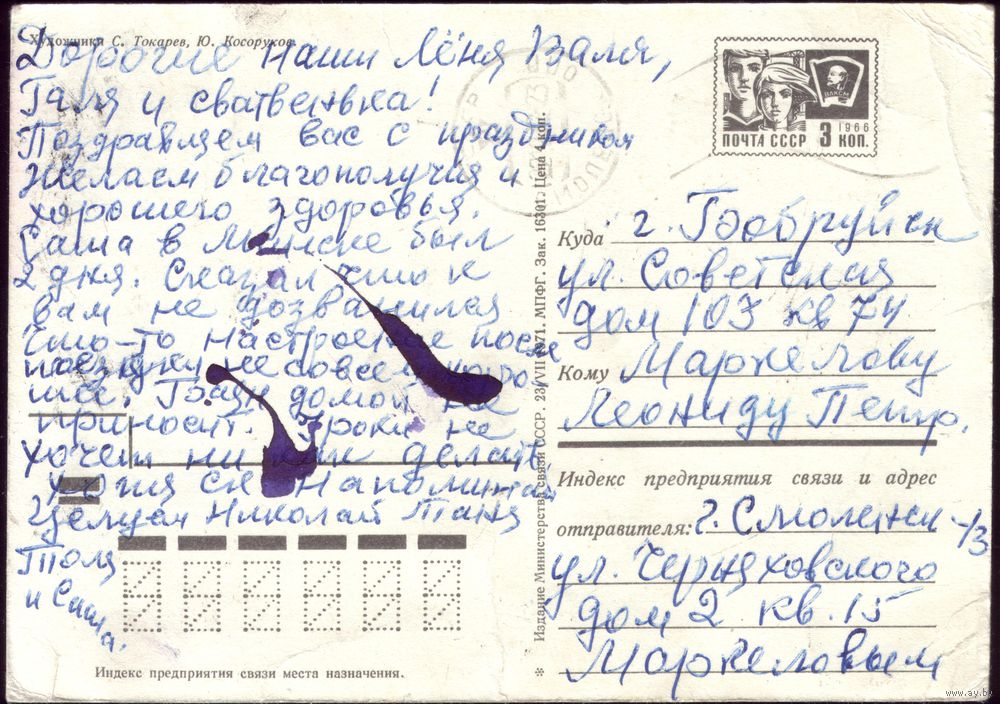 Художники С. Токарев, Ю. Косоруков
Дорогие наши Лёня Валя,
Галя и сватьюшка!
Поздравляем вас с праздником
желаем благополучия и
хорошего здоровья.
Саша в Минске был
2 дня. Сказал что к
вам не дозвонился
Что-то настроение после
поездки не совсем
Граж домой не
приносит. Уроки не
хочет ни как делать,
хотя см напоминаем
Целуем Николай Таня
Толя
и Саша.
Индекс предприятия связи места назначения.
* Издание Министерства связи СССР. 23/VII 1971. МПФГ. Зак. 16301. Цена 4 коп.
ВЛКСМ
1966
ПОЧТА СССР 3 КОП.
Куда г. Бобруйск
ул. Советская
дом 103 кв 74
Кому Маржелову
Леониду Петр.
Индекс предприятия связи и адрес
отправителя: г. Смоленск -13
ул. Черняховского
дом 2 кв. 15
Маржеловым
www.ay.by